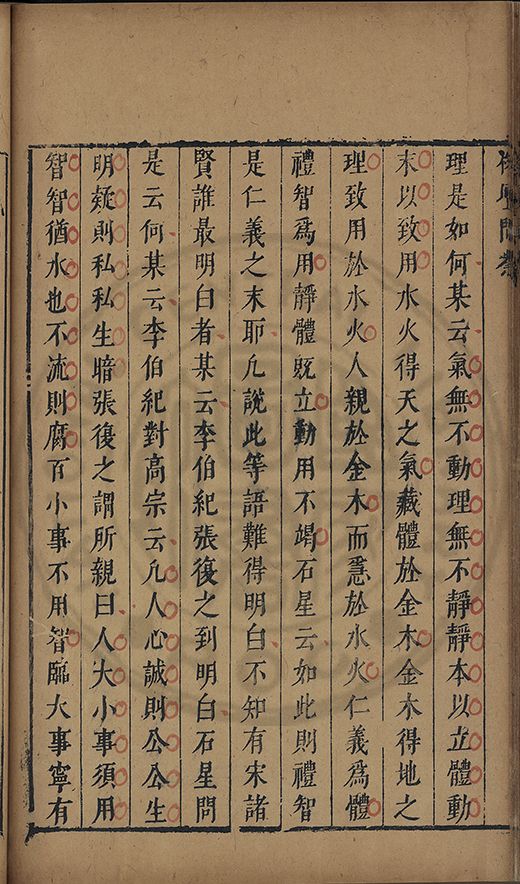 理是如何某云氣無不動理無不靜靜本以立體動
末以致用水火得天之氣藏體於金木金木得地之
理致用於水火人親於金木而急於水火仁義爲體
禮智爲用靜體既立動用不竭石星云如此則禮智
是仁義之末耶凡說此等語難得明白不知有宋諸
賢誰最明白者某云李伯紀張復之到明白石星問
是云何某云李伯紀對高宗云凡人心誠則公公生
明疑則私私生暗張復之謂所親曰人大小事須用
智智猶水也不流則腐百小事不用智臨大事寧有